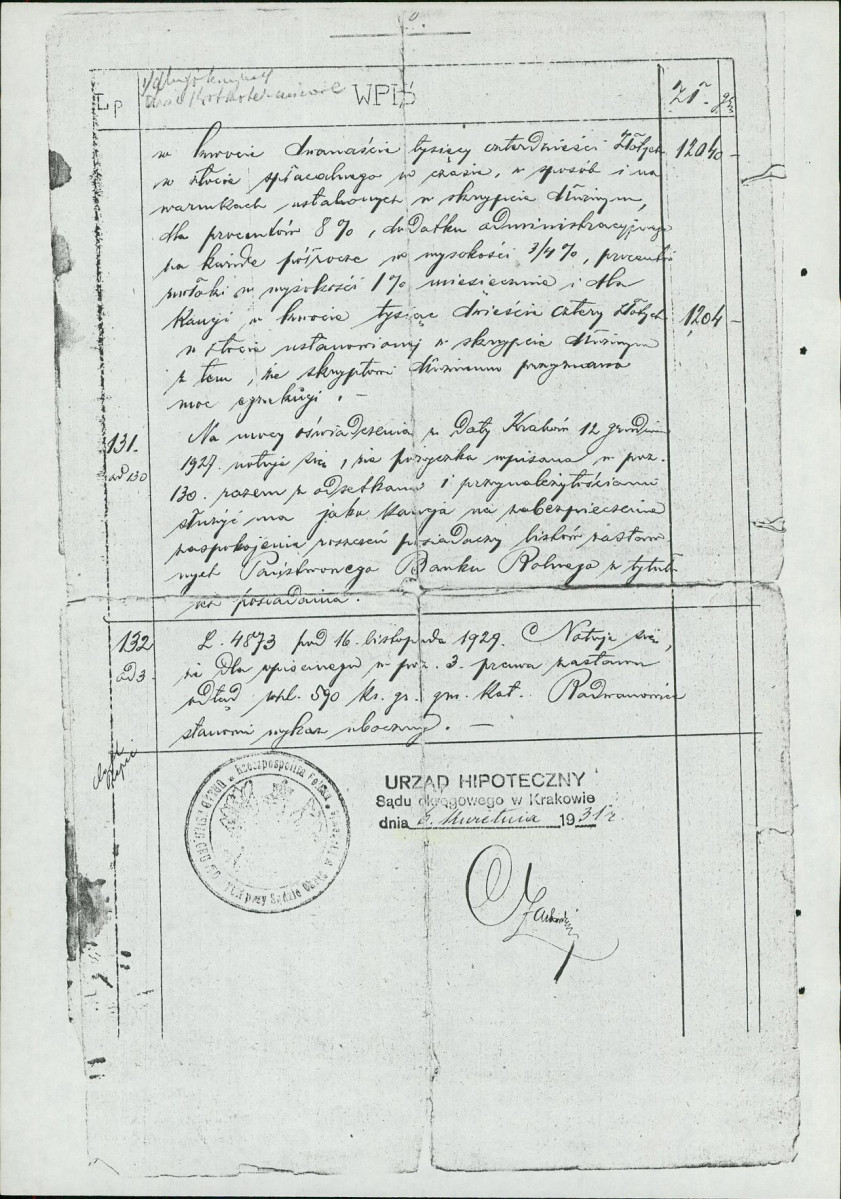 Lp WPIS Zł. gr.
w kwocie dwanaście tysięcy czterdzieści złotych 12040 –
w złocie spłacalnego w czasie, w sposób i na
warunkach ustalonych w skrypcie dłużnym,
dla procentów 8%, dodatku administracyjnego
na każde półrocze w wysokości 3/4%, procentu
zwłoki w wysokości 1% miesięcznie i dla
Kaucji w kwocie tysiąc dwieście cztery złotych 1,204 –
w złocie ustanowionej w skrypcie dłużnym
z tem, że skryptowi dłużnemu przyznano
moc egzekucji. –
131. Na mocy oświadczenia z daty Kraków 12 grudnia
ad 130 1927. notuje się, że pożyczka wpisana w poz.
130. razem z odsetkami i przynależytościami
służyć ma jako kaucja na zabezpieczenie
zaspokojenia roszczeń posiadaczy listów zastaw
nych Państwowego Banku Rolnego z tytułu
ich posiadania.
132 L. 4873 pod 16. listopada 1929. Notuje się,
ad 3. że dla wpisanego w poz. 3. prawa zastawu
odtąd whl. 590 ks. gr. gm. kat. Radwanowice
stanowi wykaz uboczny. –
URZĄD HIPOTECZNY
Sądu okręgowego w Krakowie
dnia 3. kwietnia 1931 r.
Rzeczpospolita Polska
przy Sądzie Okrę